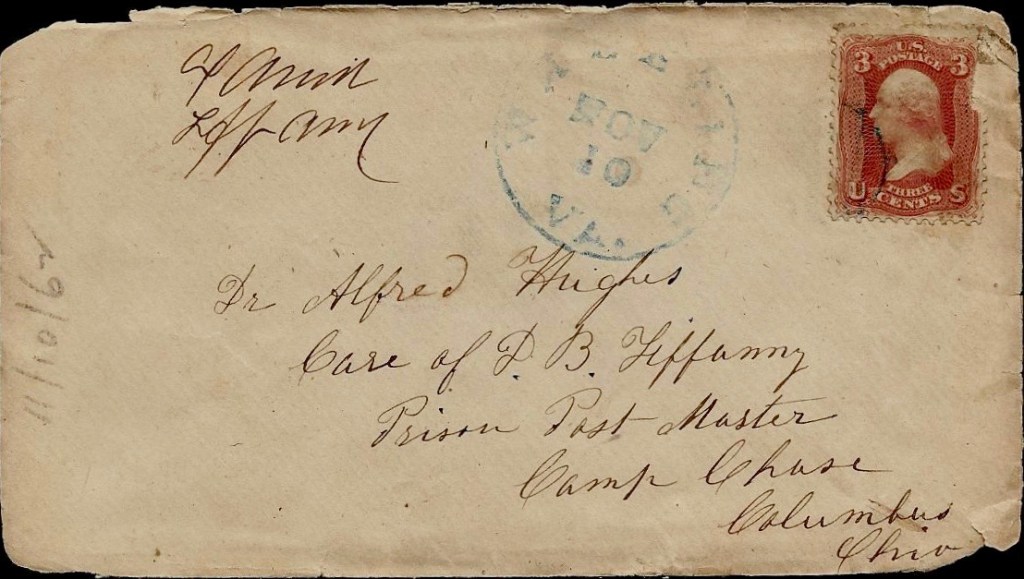 U.S.
POSTAGE
3 3
U THREE S
CENTS
WHEELING
NOV
10
VA.
Dr Alfred Hughes
Care of D. B. Tiffanny
Prison Post Master
Camp Chase
Columbus
Ohio
11/10/62